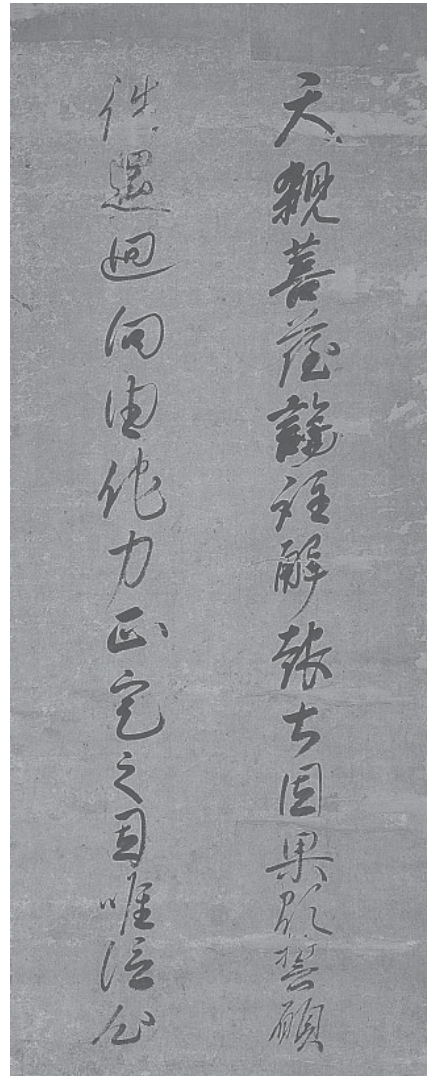 天親菩薩論註解報土因果顕誓願
往還迴向由他力正定之因唯信心